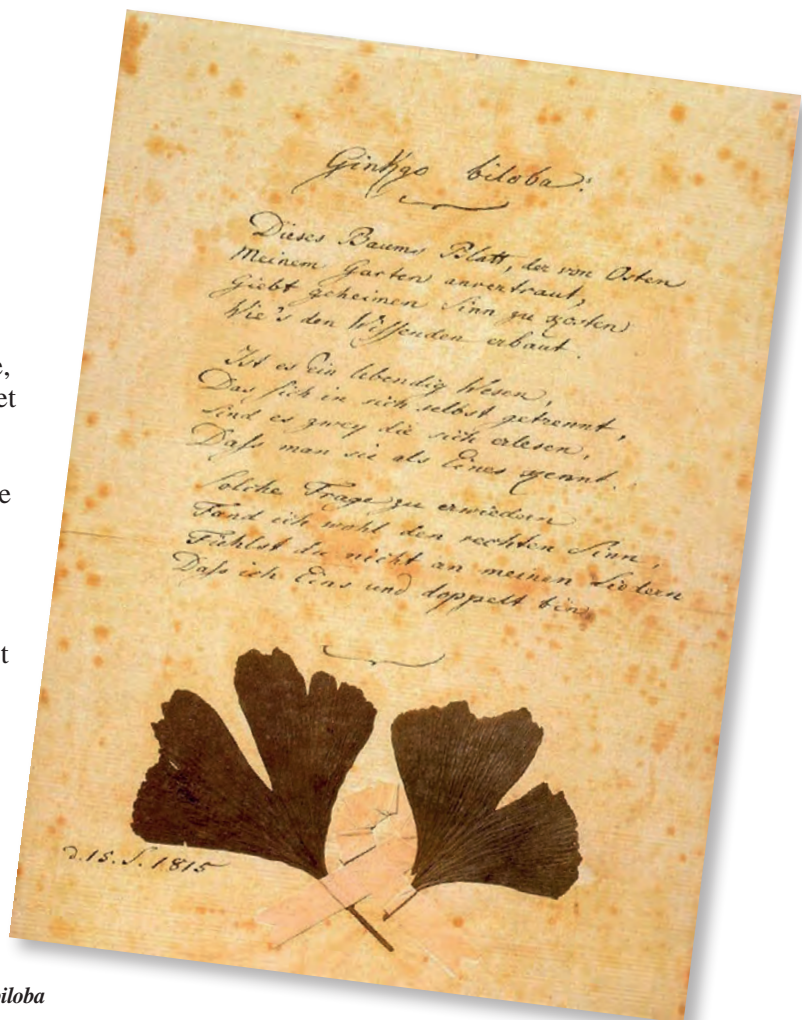 Ginkgo biloba.
Dieses Baums Blatt, der von Osten
Meinem Garten anvertraut,
Giebt geheimen Sinn zu kosten
Wie's den Wissenden erbaut.
Ist es Ein lebendig Wesen,
Das sich in sich selbst getrennt,
Sind es zwey die sich erlesen,
Daſs man sie als Eines kennt.
Solche Frage zu erwiedern
Fand ich wohl den rechten Sinn,
Fühlst du nicht an meinen Liedern
Daſs ich Eins und doppelt bin
d. 15. S. 1815
e,
et
e
t
iloba